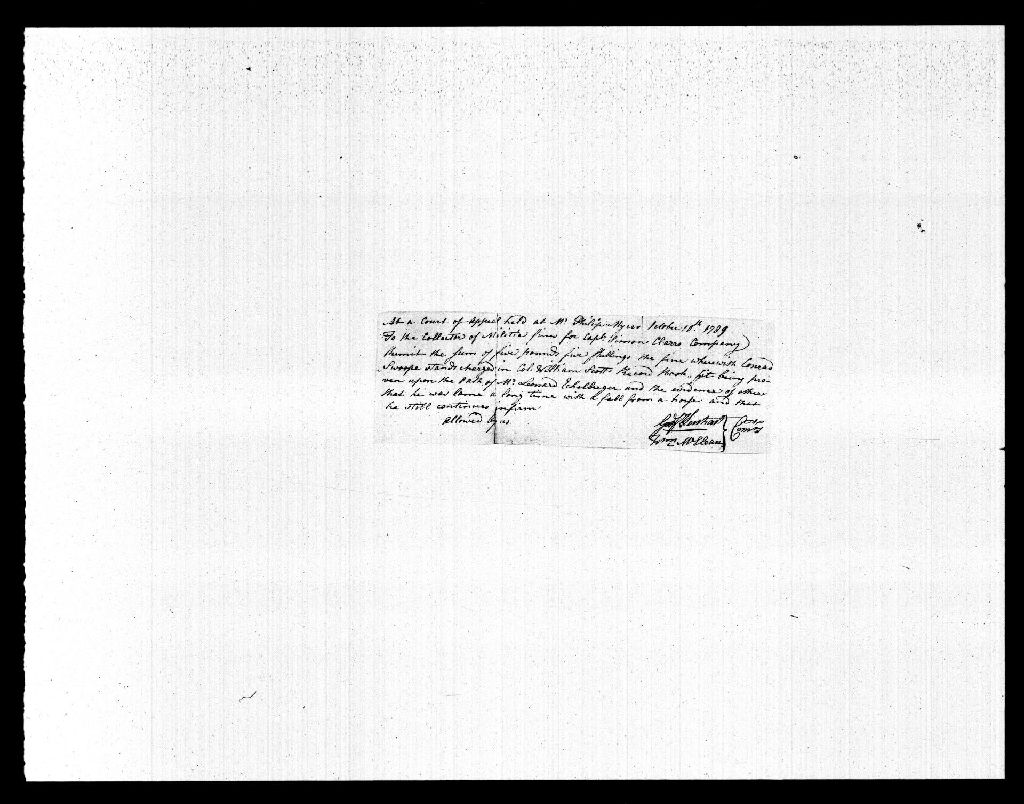 At a Court of Appeal held at Mr Philip Myers October 18th 1789
To the Collector of Militia fines for Capt Simon Clares Company
Remit the sum of five pounds five shillings the fine wherewith Conrad
Swoope stands charged in Col. William Scotts Record Book, it being pro-
ven upon the oath of Mr Leonard Echelberger and the evidence of others
that he was lame a long time with a fall from a horse and that
he still continues infirm
allowed by us
Comrs
Wm McClean